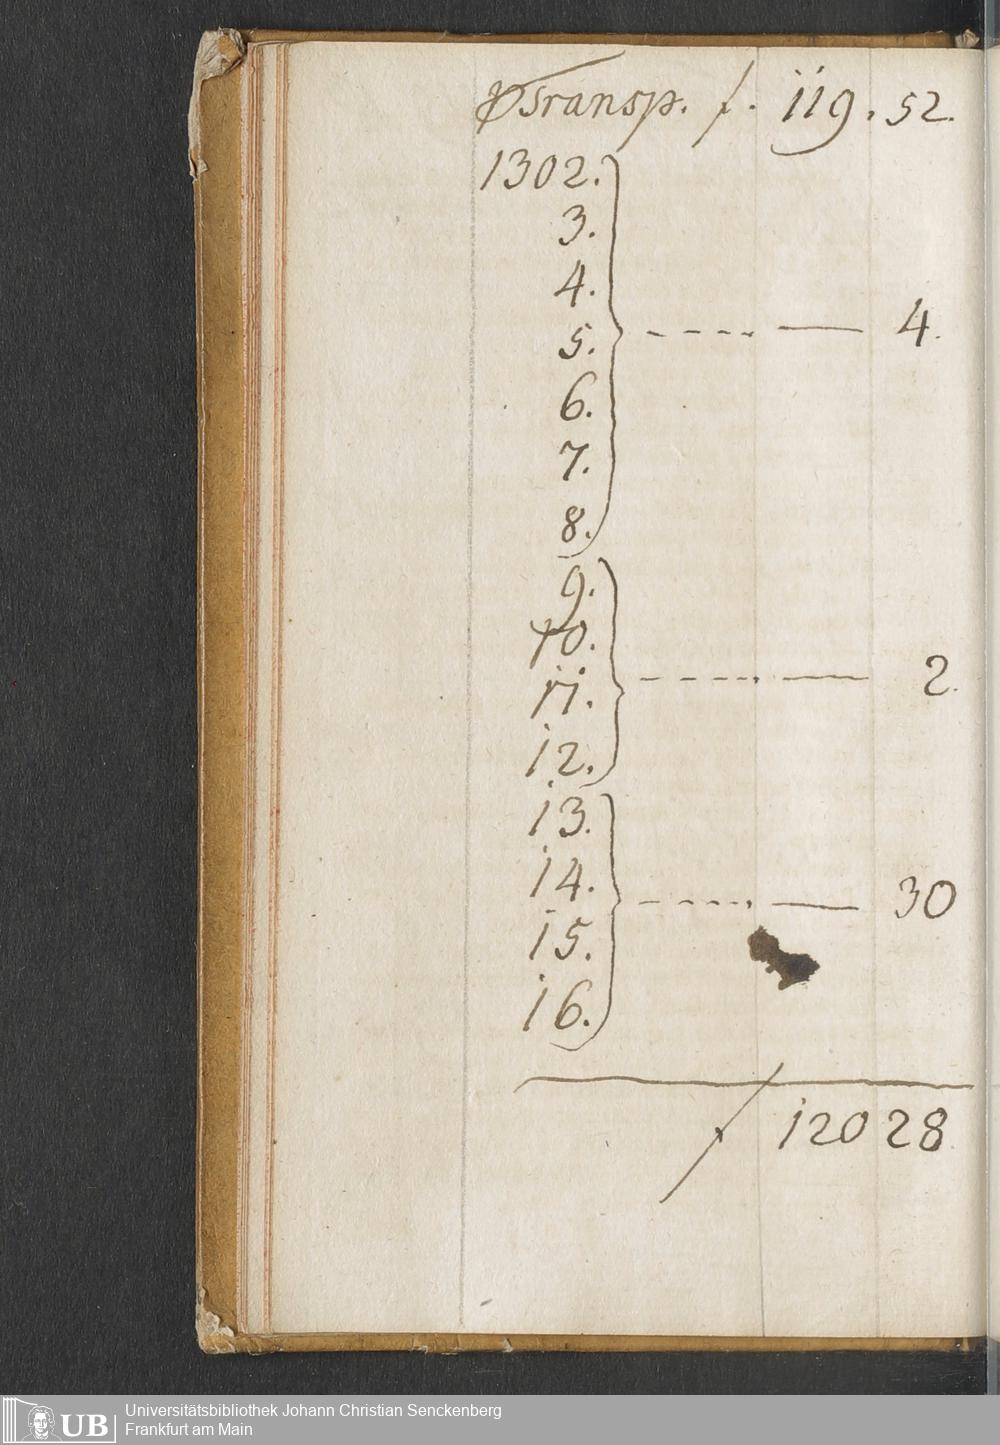 Transp. f. 119. 52.
1302.
3.
4.
5. - - - - — 4.
6.
7.
8.
9.
10.
11. - - - - — 2.
12.
13.
14. - - - - — 30
15.
16.
f 120 28
UB
Universitätsbibliothek Johann Christian Senckenberg
Frankfurt am Main